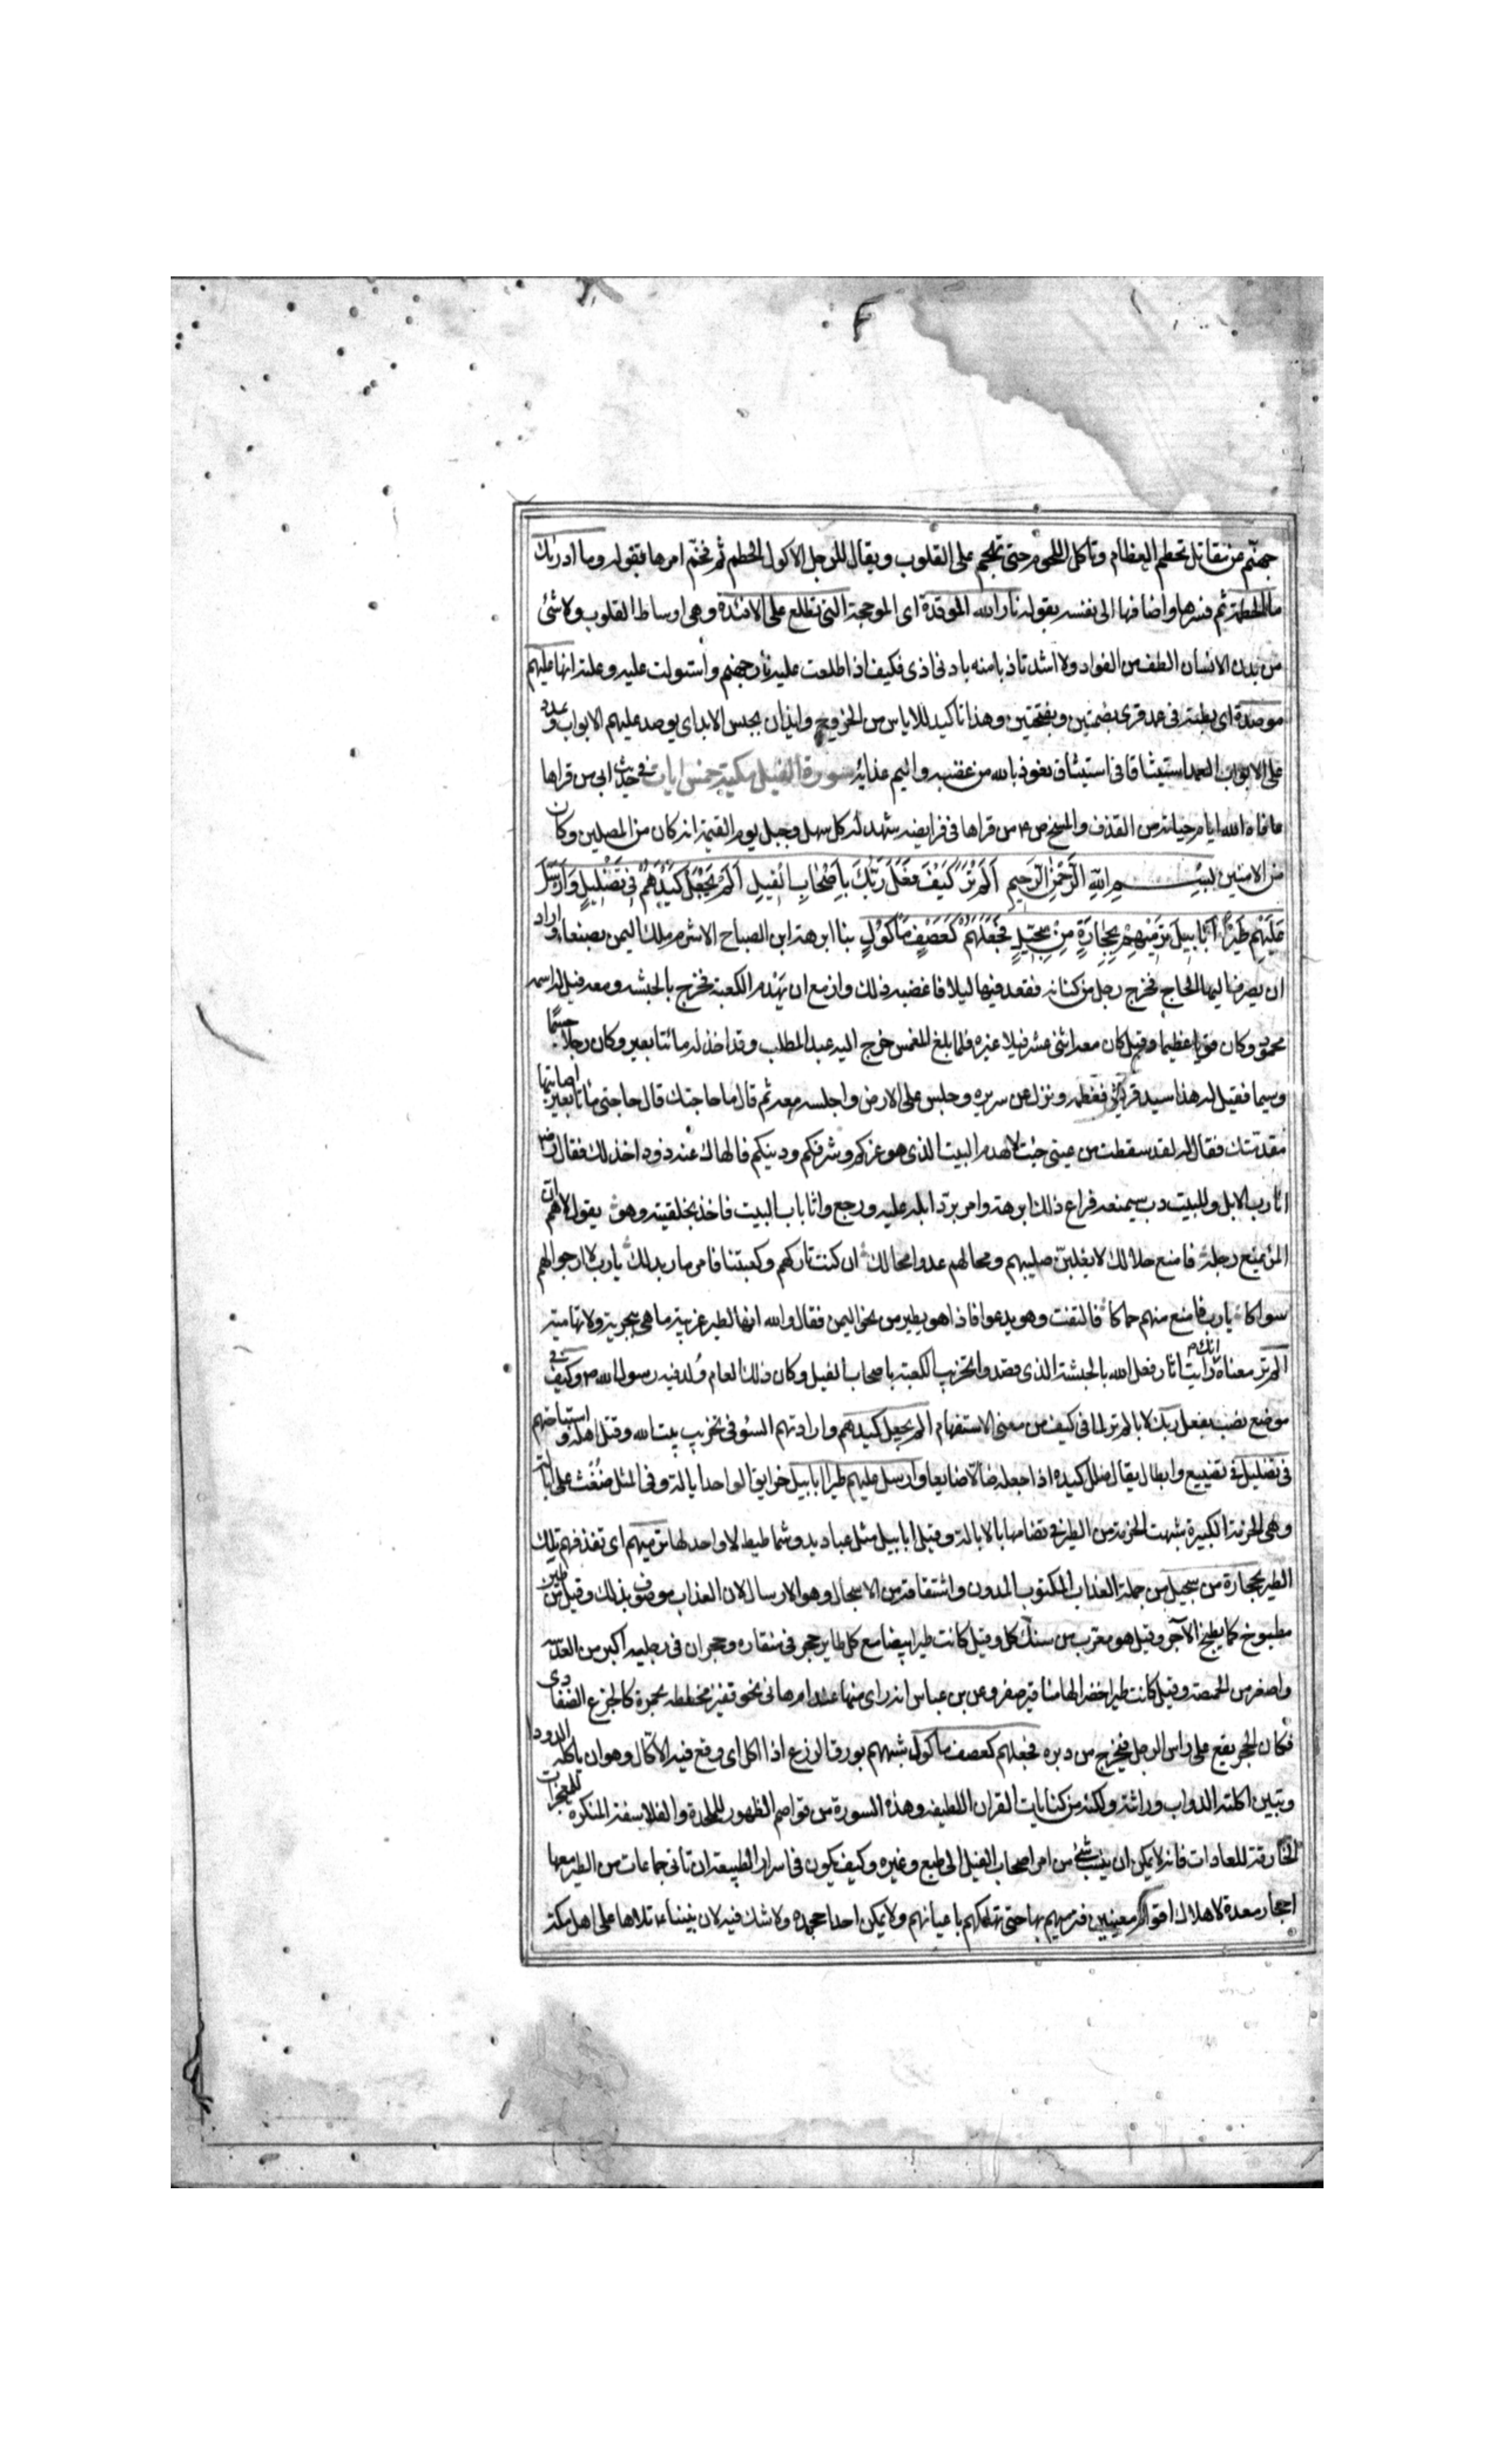 جهنم عن مقاتل تحطم العظام وتاكل اللحوم حتى تهجم على القلوب ويقال للرجل الاكول الحطم ثم فخم امرها بقوله وما ادريك
ما الحطمة ثم فسرها واضافها الى نفسه بقوله نار الله الموقدة اى الموججة التى تطلع على الافئدة وهى اوساط القلوب ولا شئ
من بدن الانسان الطف من الفواد ولا اشد تاذيا منه بادنى اذى فكيف اذا اطلعت عليه نار جهنم واستولت عليه وعلته انها عليهم
موصدة اى مطبقة فى عمد قرى بضمتين وبفتحتين وهذا تاكيد للاياس من الخروج وايذان بحبس الابد اى يوصد عليهم الابواب وتمدد
على الابواب العمد استيثاقا فى استيثاق نعوذ بالله من غضبه واليم عذابه سورة الفيل مكية خمس ايات فى حديث ابى من قراها
عافاه الله ايام حياته من القذف والمسخ ص م من قراها فى فرايضه شهد له كل سهل وجبل يوم القيمة انه كان من المصلين وكان
من الامنين بسم الله الرحمن الرحيم الم تر كيف فعل ربك باصحاب الفيل الم يجعل كيدهم فى تضليل وارسل
عليهم طيرا ابابيل ترميهم بحجارة من سجيل فجعلهم كعصف ماكول بنا ابرهة ابن الصباح الاشرم ملك اليمن بصنعا واراد
ان يصرف اليها الحاج فخرج رجل من كنانه فقعد فيها ليلا فاغضبه ذلك وازمع ان يهدم الكعبة فخرج بالحبشه ومعه فيل له اسمه
محمود وكان قويا عظيما وقيل كان معه اثنى عشر فيلا غيره فلما بلغ المغمس خرج اليه عبد المطلب وقد اخذ له مائتا بعير وكان رجلا جسيما
وسيما فقيل له هذا سيد قريش فعظمه ونزل عن سريره وجلس على الارض واجلسه معه ثم قال ما حاجتك قال حاجتى مائتا بعير اصابتها
مقدمتك فقال له لقد سقطت من عينى جئت لاهدم البيت الذى هو عزكم وشرفكم ودينكم فالهاك عنه ذود اخذ لك فقال
انا رب الابل وللبيت رب سيمنعه فراع ذلك ابرهة وامر برد ابله عليه ورجع واتا باب البيت فاخذ بحلقيته وهو يقول لاهم ان
المرء يمنع رحله فامنع حلالك لا يغلبن صليبهم ومحالهم عدوا محالك ان كنت تاركهم وكعبتنا فامر ما بدا لك يا رب لا ارجو لهم
سواكا يا رب فامنع منهم حماكا فالتفت وهو يدعوا فاذا هو بطير من نحو اليمن فقال والله انها لطير غريبة ما هى بنجدية ولا تهامية
الم تر معناه انك رايت اثار فعل الله بالحبشة الذى قصدوا تخريب الكعبة باصحاب الفيل وكان ذلك العام ولد فيه رسول الله ص وكيف فى
موضع نصب بفعل ربك لا بالم تر لما فى كيف من معنى الاستفهام الم يجعل كيدهم وارادتهم السؤ فى تخريب بيت الله وقتل اهله واستباحتهم
فى تضليل فى تضييع وابطال يقال ضلل كيده اذا جعله ضالا ضايعا وارسل عليهم طيرا ابابيل خرايق الواحد ابالة وفى المثل ضغث على ابالة
وهى الحزمة الكبيرة شبهت الحزمة من الطير فى تضامها بالابالة وقيل ابابيل مثل عباديد وشماطيط لا واحد لها ترميهم اى تقذفهم تلك
الطير بحجارة من سجيل من جملة العذاب المكتوب المدون واشتقاقه من الاسجال وهو الارسال لان العذاب موصوف بذلك وقيل من طين
مطبوخ كما يطبخ الاجر وقيل هو معرب من سنك كل وقيل كانت طيرا بيضا مع كل طاير حجر فى منقاره وحجران فى رجليه اكبر من العدسة
واصغر من الحمصة وقيل كانت طيرا خضرا لها مناقير صفر وعن بن عباس انه راى منها عند ام هانى نحو قفيز مخططه بحمرة كالجزع الظفارى
فكان الحجر يقع على راس الرجل فيخرج من دبره فجعلهم كعصف ماكول شبههم بورق الزرع اذا اكل اى وقع فيه الاكال وهو ان ياكله الدود
وتبين اكلته الدواب وراثته ولكنه من كنايات القران اللطيفه وهذه السورة من قواصم الظهور للملحدة والفلاسفة المنكرة للمعجزات
الخارقة للعادات فانه لا يمكن ان ينسب شئ من امر اصحاب الفيل الى طبع وغيره وكيف يكون فى اسرار الطبيعة ان تاتى جماعات من الطير معها
احجار معدة لاهلاك اقوام معينين فترميهم بها حتى تهلكهم باعيانهم ولا يمكن احدا جحده ولا شك فيه لان نبينا ع تلاها على اهل مكة